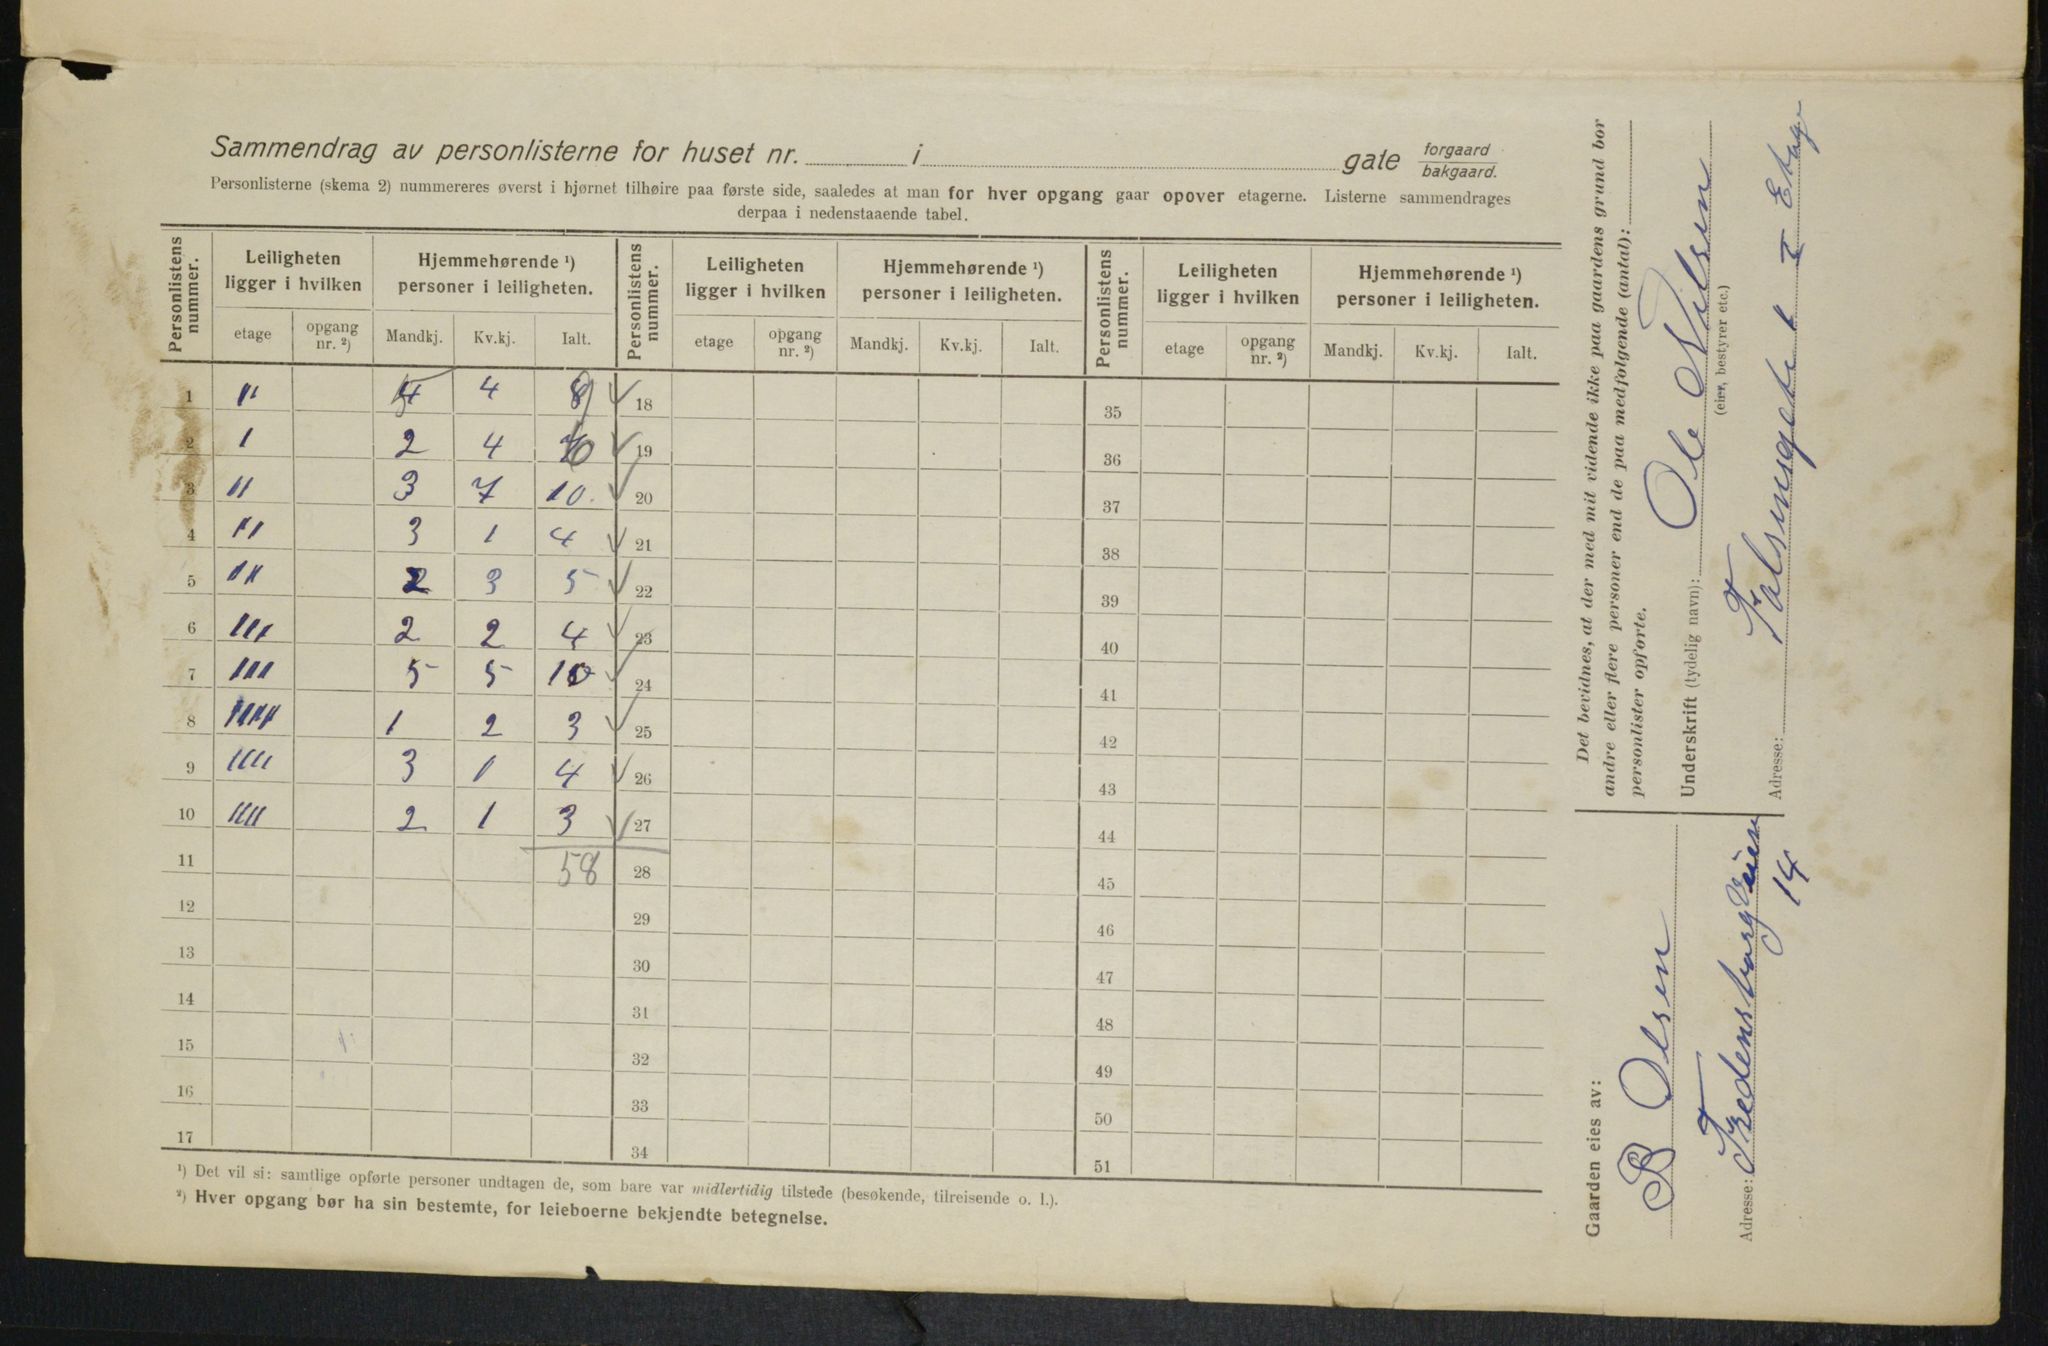 Sammendrag av personlisterne for huset nr. i gate forgaard bakgaard.
Personlisterne (skema 2) nummereres øverst i hjørnet tilhøire paa første side, saaledes at man for hver opgang gaar opover etagerne. Listerne sammendrages
derpaa i nedenstaaende tabel.
Personlistens nummer. Leiligheten ligger i hvilken Hjemmehørende ¹) personer i leiligheten. Personlistens nummer. Leiligheten ligger i hvilken Hjemmehørende ¹) personer i leiligheten. Personlistens nummer. Leiligheten ligger i hvilken Hjemmehørende ¹) personer i leiligheten.
etage opgang nr. ²) Mandkj. Kv.kj. Ialt. etage opgang nr. ²) Mandkj. Kv.kj. Ialt. etage opgang nr. ²) Mandkj. Kv.kj. Ialt.
1 11 5 4 9 ✓ 18 35
2 1 2 4 6 ✓ 19 36
3 11 3 7 10. ✓ 20 37
4 11 3 1 4 ✓ 21 38
5 11 2 3 5 ✓ 22 39
6 111 2 2 4 ✓ 23 40
7 111 5 5 10 ✓ 24 41
8 1111 1 2 3 ✓ 25 42
9 1111 3 1 4 ✓ 26 43
10 1111 2 1 3 ✓ 27 44
11 58 28 45
12 29 46
13 30 47
14 31 48
15 32 49
16 33 50
17 34 51
¹) Det vil si: samtlige opførte personer undtagen de, som bare var midlertidig tilstede (besøkende, tilreisende o. l.).
²) Hver opgang bør ha sin bestemte, for leieboerne bekjendte betegnelse.
Det bevidnes, at der med mit vidende ikke paa gaardens grund bor
andre eller flere personer end de paa medfølgende (antal):
personlister opførte.
Underskrift (tydelig navn): Ole Nilsen
(eier, bestyrer etc.)
Adresse: Falsensgate 1 I Etage
Gaarden eies av:
B Olsen
Adresse: Fredensborgveien
14